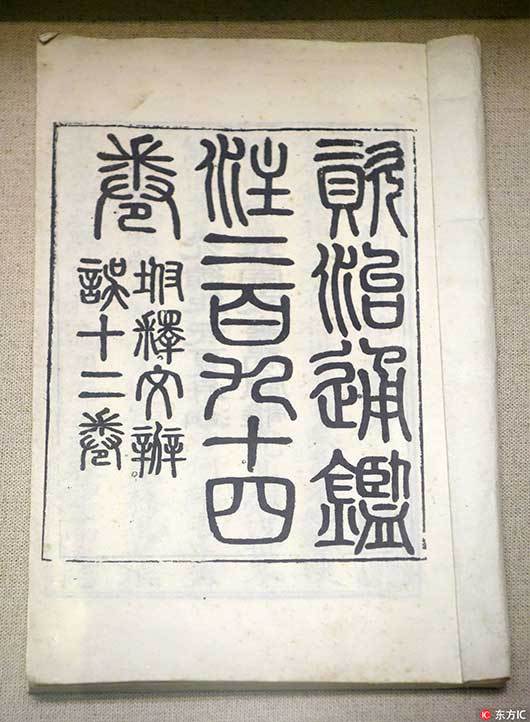 資治通鑑
注二百九十四
卷
坿釋文辨
誤十二卷
IC 东方IC